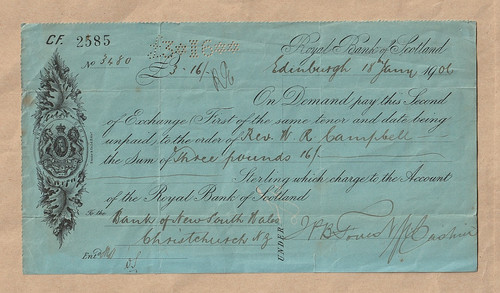 C.F. 2585
Royal Bank of Scotland
No 3480
£3.16/-
Edinburgh 18 Jany 1906
On Demand pay this Second
of Exchange First of the same tenor and date being
unpaid, to the order of Rev. W. R. Campbell
the Sum of Three pounds 16/-
Sterling which charge to the Account
of the Royal Bank of Scotland
To the Bank of New South Wales
Christchurch N.Z.
UNDER
Entd